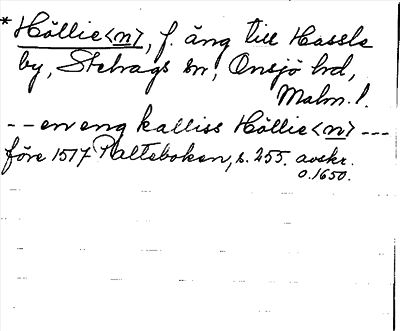 *Höllie<n>, f. äng till Hassle
by, Stehags sn, Onsjö hd,
Malm. l.
-- en eng kalliss Höllie<n> ---
före 1517 Palteboken, s. 255. avskr.
o. 1650.